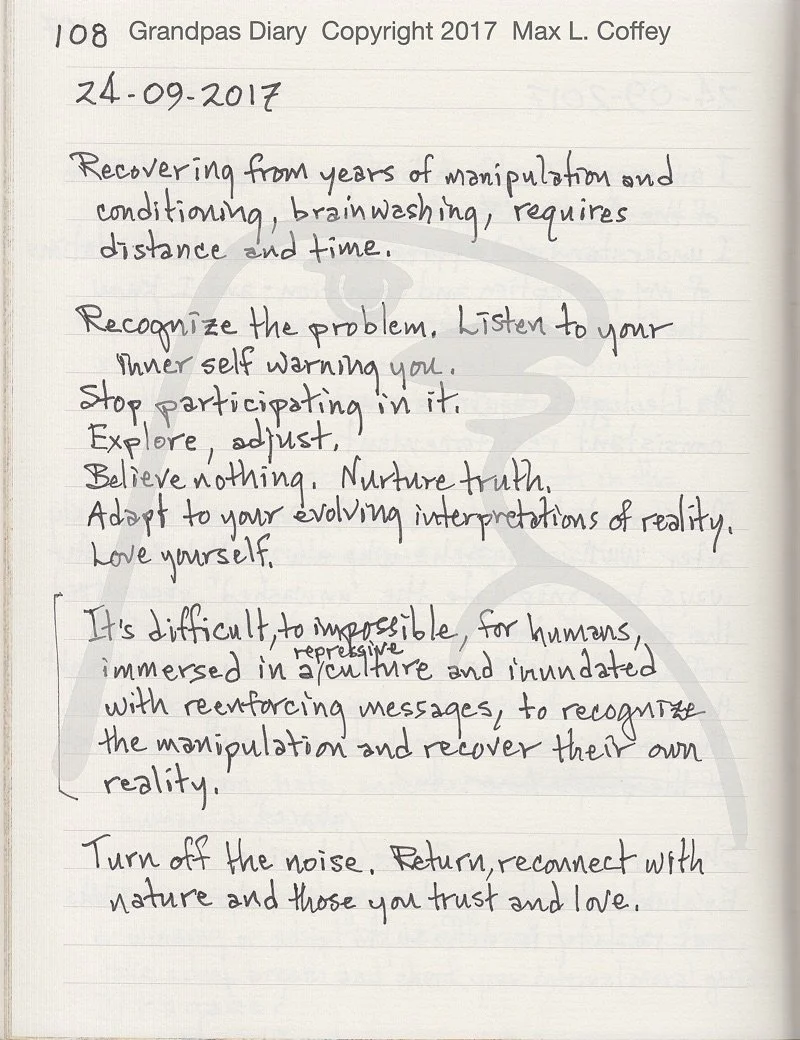 108 Grandpas Diary Copyright 2017 Max L. Coffey
24-09-2017
Recovering from years of manipulation and
conditioning, brainwashing, requires
distance and time.
Recognize the problem. Listen to your
inner self warning you.
Stop participating in it.
Explore, adjust.
Believe nothing. Nurture truth.
Adapt to your evolving interpretations of reality.
Love yourself.
It's difficult, to impossible, for humans,
repressive
immersed in a/culture and inundated
with reenforcing messages, to recognize
the manipulation and recover their own
reality.
Turn off the noise. Return, reconnect with
nature and those you trust and love.